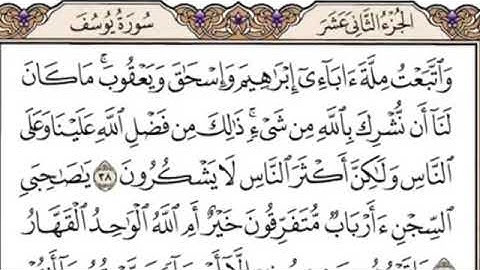 الجزء الثاني عشر
سورة يوسف
وَٱتَّبَعۡتُ مِلَّةَ ءَابَآءِيٓ إِبۡرَٰهِيمَ وَإِسۡحَٰقَ وَيَعۡقُوبَۚ مَا كَانَ
لَنَآ أَن نُّشۡرِكَ بِٱللَّهِ مِن شَيۡءٖۚ ذَٰلِكَ مِن فَضۡلِ ٱللَّهِ عَلَيۡنَا وَعَلَى
ٱلنَّاسِ وَلَٰكِنَّ أَكۡثَرَ ٱلنَّاسِ لَا يَشۡكُرُونَ ٣٨ يَٰصَٰحِبَيِ
ٱلسِّجۡنِ ءَأَرۡبَابٞ مُّتَفَرِّقُونَ خَيۡرٌ أَمِ ٱللَّهُ ٱلۡوَٰحِدُ ٱلۡقَهَّارُ